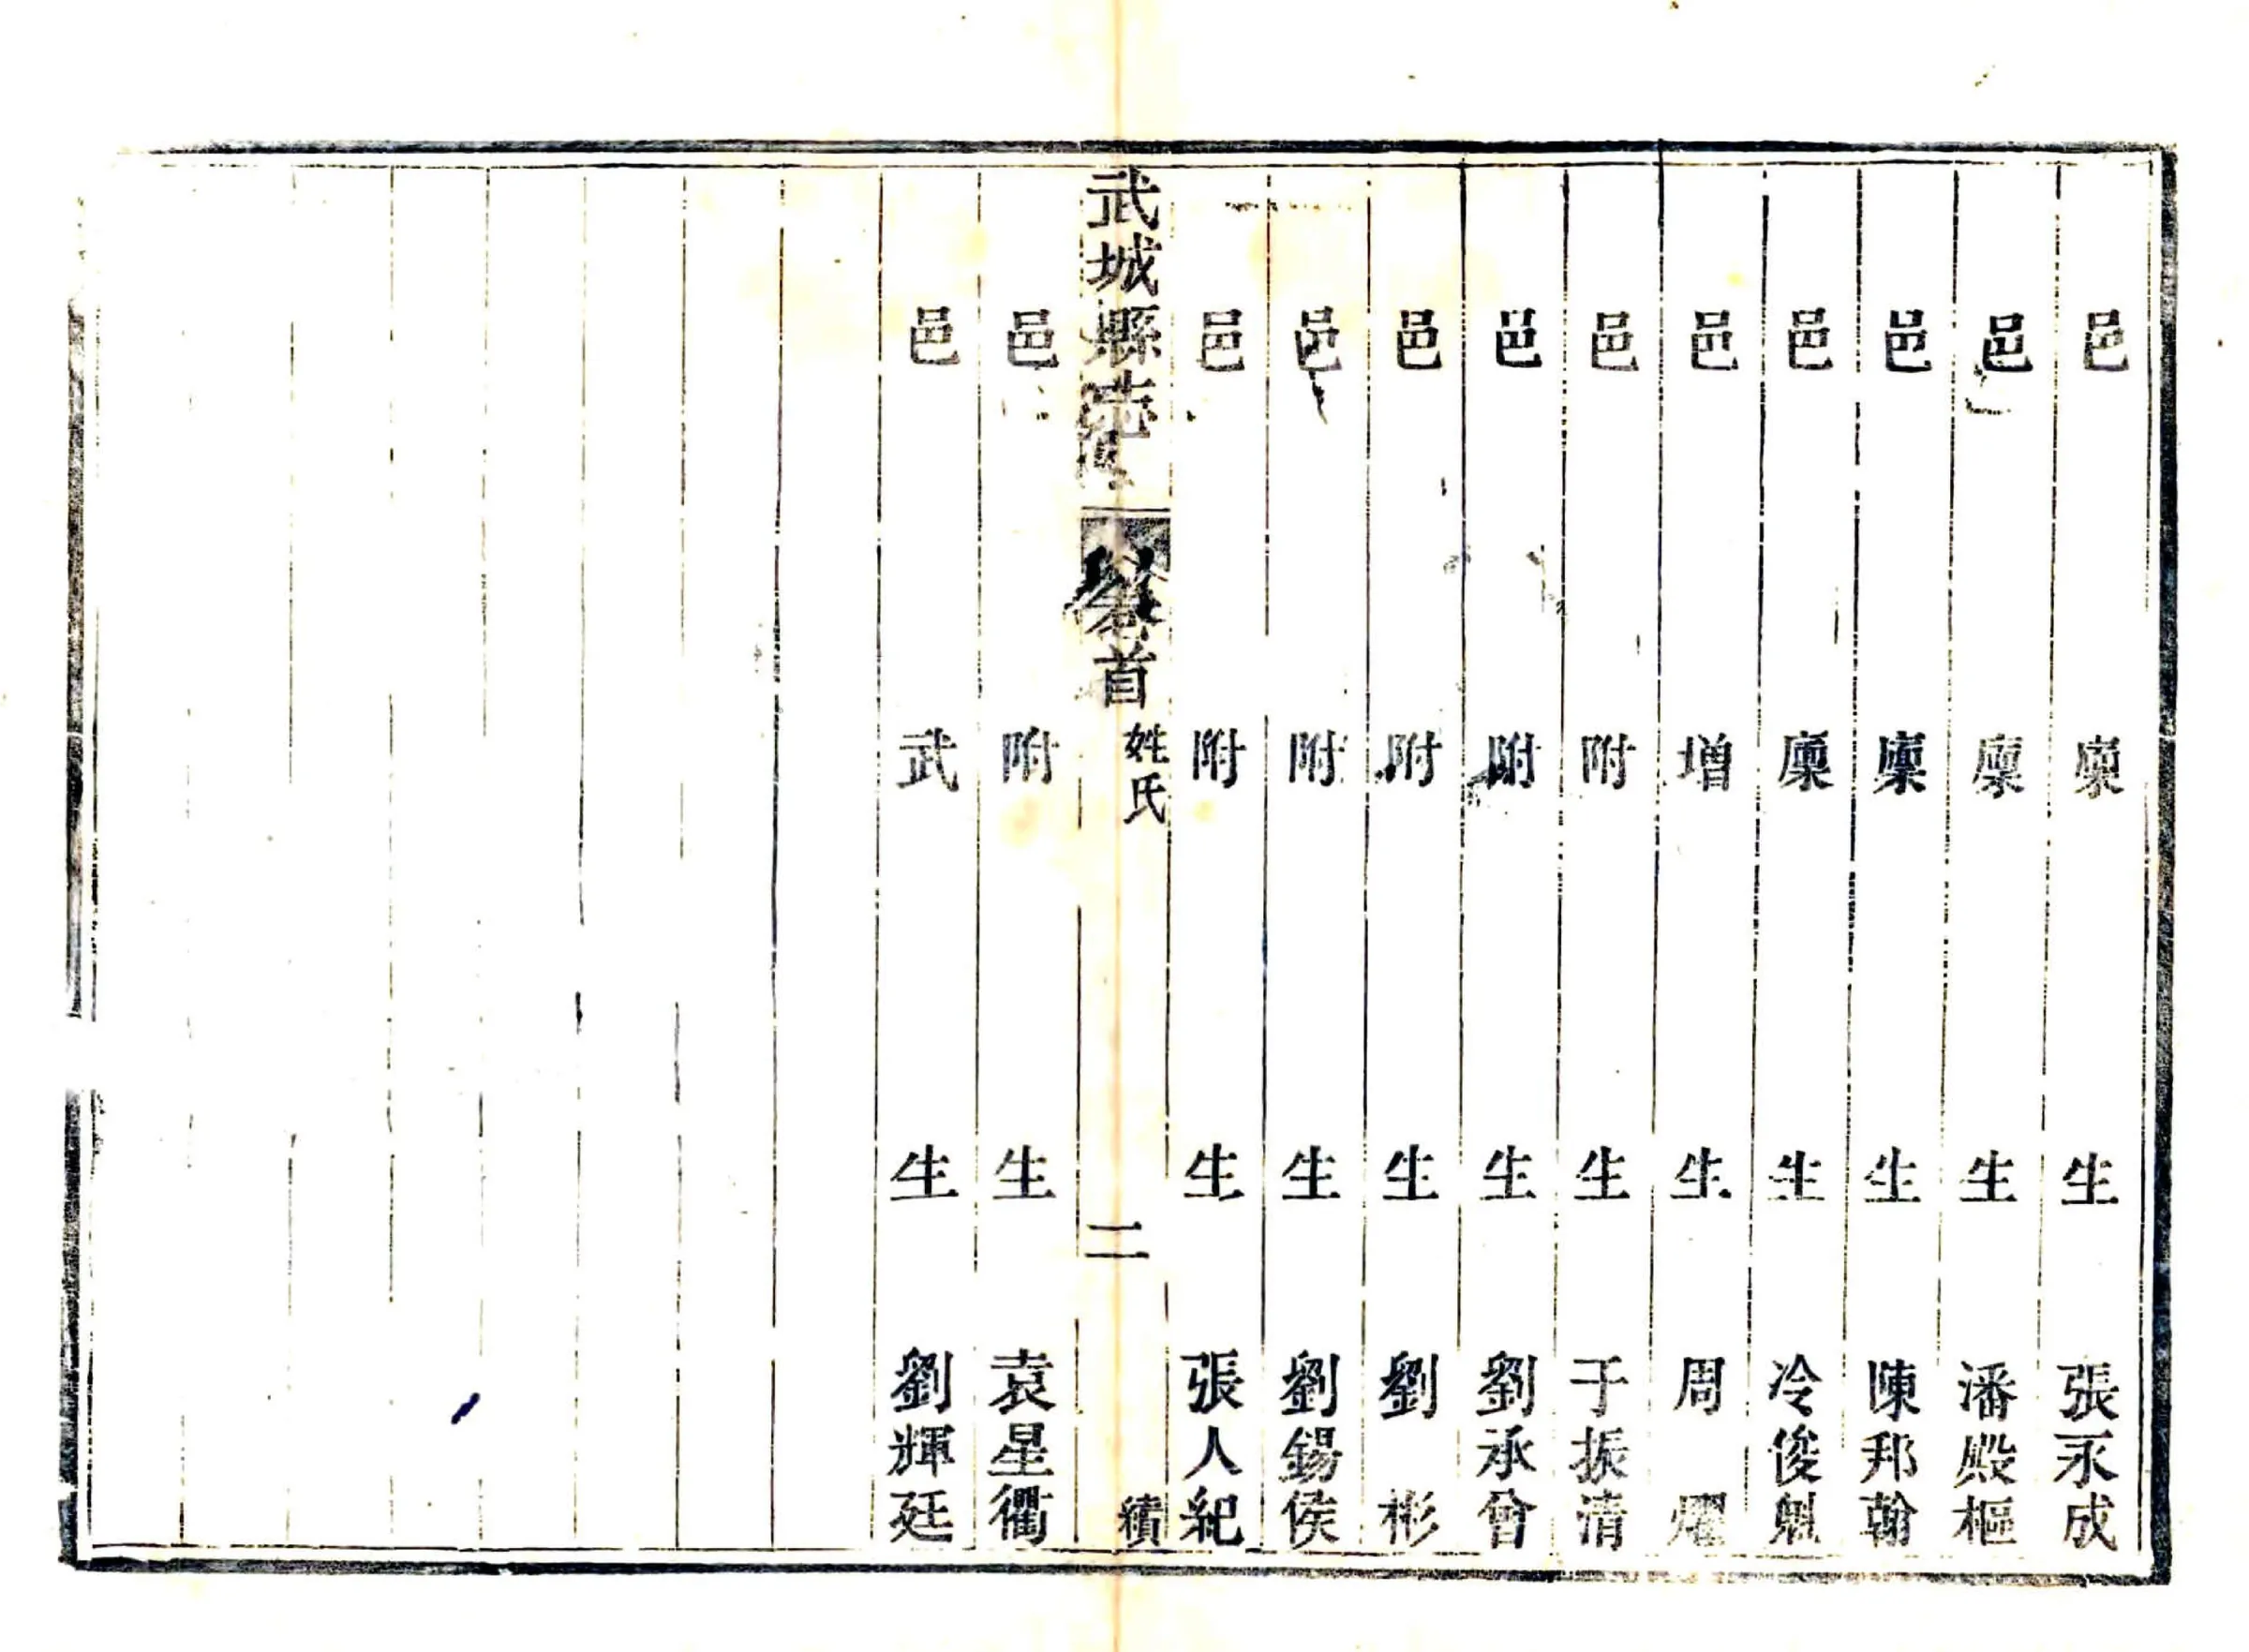 邑廩生張永成
邑廩生潘殿樞
邑廩生陳邦翰
邑廩生冷俊魁
邑增生周燿
邑附生于振清
邑附生劉承曾
邑附生劉彬
邑附生劉錫侯
邑附生張人紀
武城縣志卷首 姓氏 二 續
邑附生袁星衢
邑武生劉輝廷